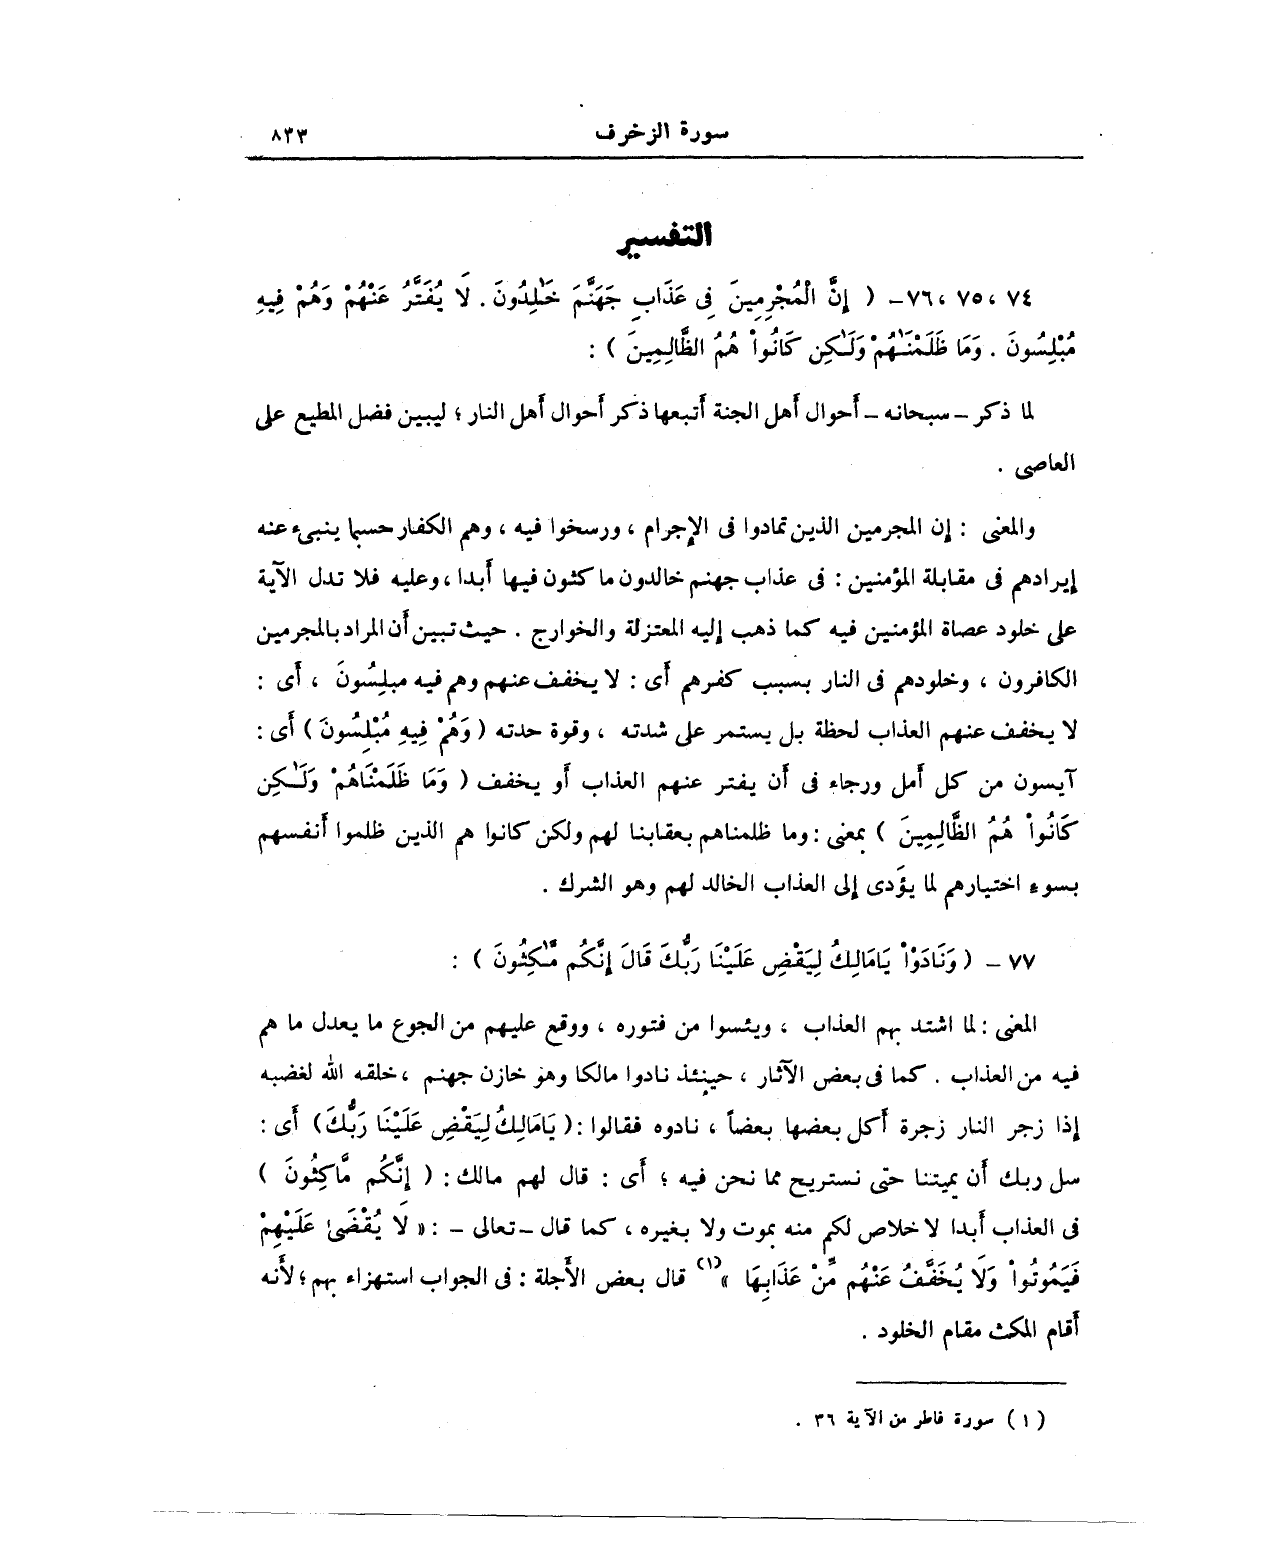 سورة الزخرف ٨٣٣
التفسير
٧٤ ، ٧٥ ، ٧٦- ( إِنَّ الْمُجْرِمِينَ فِى عَذَابِ جَهَنَّمَ خَـٰلِدُونَ . لَا يُفَتَّرُ عَنْهُمْ وَهُمْ فِيهِ
مُبْلِسُونَ . وَمَا ظَلَمْنَـٰهُمْ وَلَـٰكِن كَانُواْ هُمُ الظَّالِمِينَ ) :
لما ذكر – سبحانه – أحوال أهل الجنة أتبعها ذكر أحوال أهل النار ؛ ليبين فضل المطيع على
العاصى .
والمعنى : إن المجرمين الذين تمادوا فى الإجرام ، ورسخوا فيه ، وهم الكفار حسبما ينبىء عنه
إيرادهم فى مقابلة المؤمنين : فى عذاب جهنم خالدون ماكثون فيها أبدا ، وعليه فلا تدل الآية
على خلود عصاة المؤمنين فيه كما ذهب إليه المعتزلة والخوارج . حيث تبين أن المراد بالمجرمين
الكافرون ، وخلودهم فى النار بسبب كفرهم أى : لا يخفف عنهم وهم فيه مبلِسُونَ ، أى :
لا يخفف عنهم العذاب لحظة بل يستمر على شدته ، وقوة حدته ( وَهُمْ فِيهِ مُبْلِسُونَ ) أى :
آيسون من كل أمل ورجاء فى أن يفتر عنهم العذاب أو يخفف ( وَمَا ظَلَمْنَاهُمْ وَلَـٰكِن
كَانُواْ هُمُ الظَّالِمِينَ ) بمعنى : وما ظلمناهم بعقابنا لهم ولكن كانوا هم الذين ظلموا أنفسهم
بسوء اختيارهم لما يؤَدى إلى العذاب الخالد لهم وهو الشرك .
٧٧ – ( وَنَادَوْاْ يَامَالِكُ لِيَقْضِ عَلَيْنَا رَبُّكَ قَالَ إِنَّكُم مَّـٰكِثُونَ ) :
المعنى : لما اشتد بهم العذاب ، ويئسوا من فتوره ، ووقع عليهم من الجوع ما يعدل ما هم
فيه من العذاب . كما فى بعض الآثار ، حينئذ نادوا مالكا وهو خازن جهنم ، خلقه الله لغضبه
إذا زجر النار زجرة أكل بعضها بعضاً ، نادوه فقالوا : ( يَامَالِكُ لِيَقْضِ عَلَيْنَا رَبُّكَ ) أى :
سل ربك أن يميتنا حتى نستريح مما نحن فيه ؛ أى : قال لهم مالك : ( إِنَّكُم مَّاكِثُونَ )
فى العذاب أبدا لا خلاص لكم منه بموت ولا بغيره ، كما قال – تعالى – : « لَا يُقْضَىٰ عَلَيْهِمْ
فَيَمُوتُواْ وَلَا يُخَفَّفُ عَنْهُم مِّنْ عَذَابِهَا » (١) قال بعض الأجلة : فى الجواب استهزاء بهم ؛ لأنه
أقام المكث مقام الخلود .
(١) سورة فاطر من الآية ٣٦ .